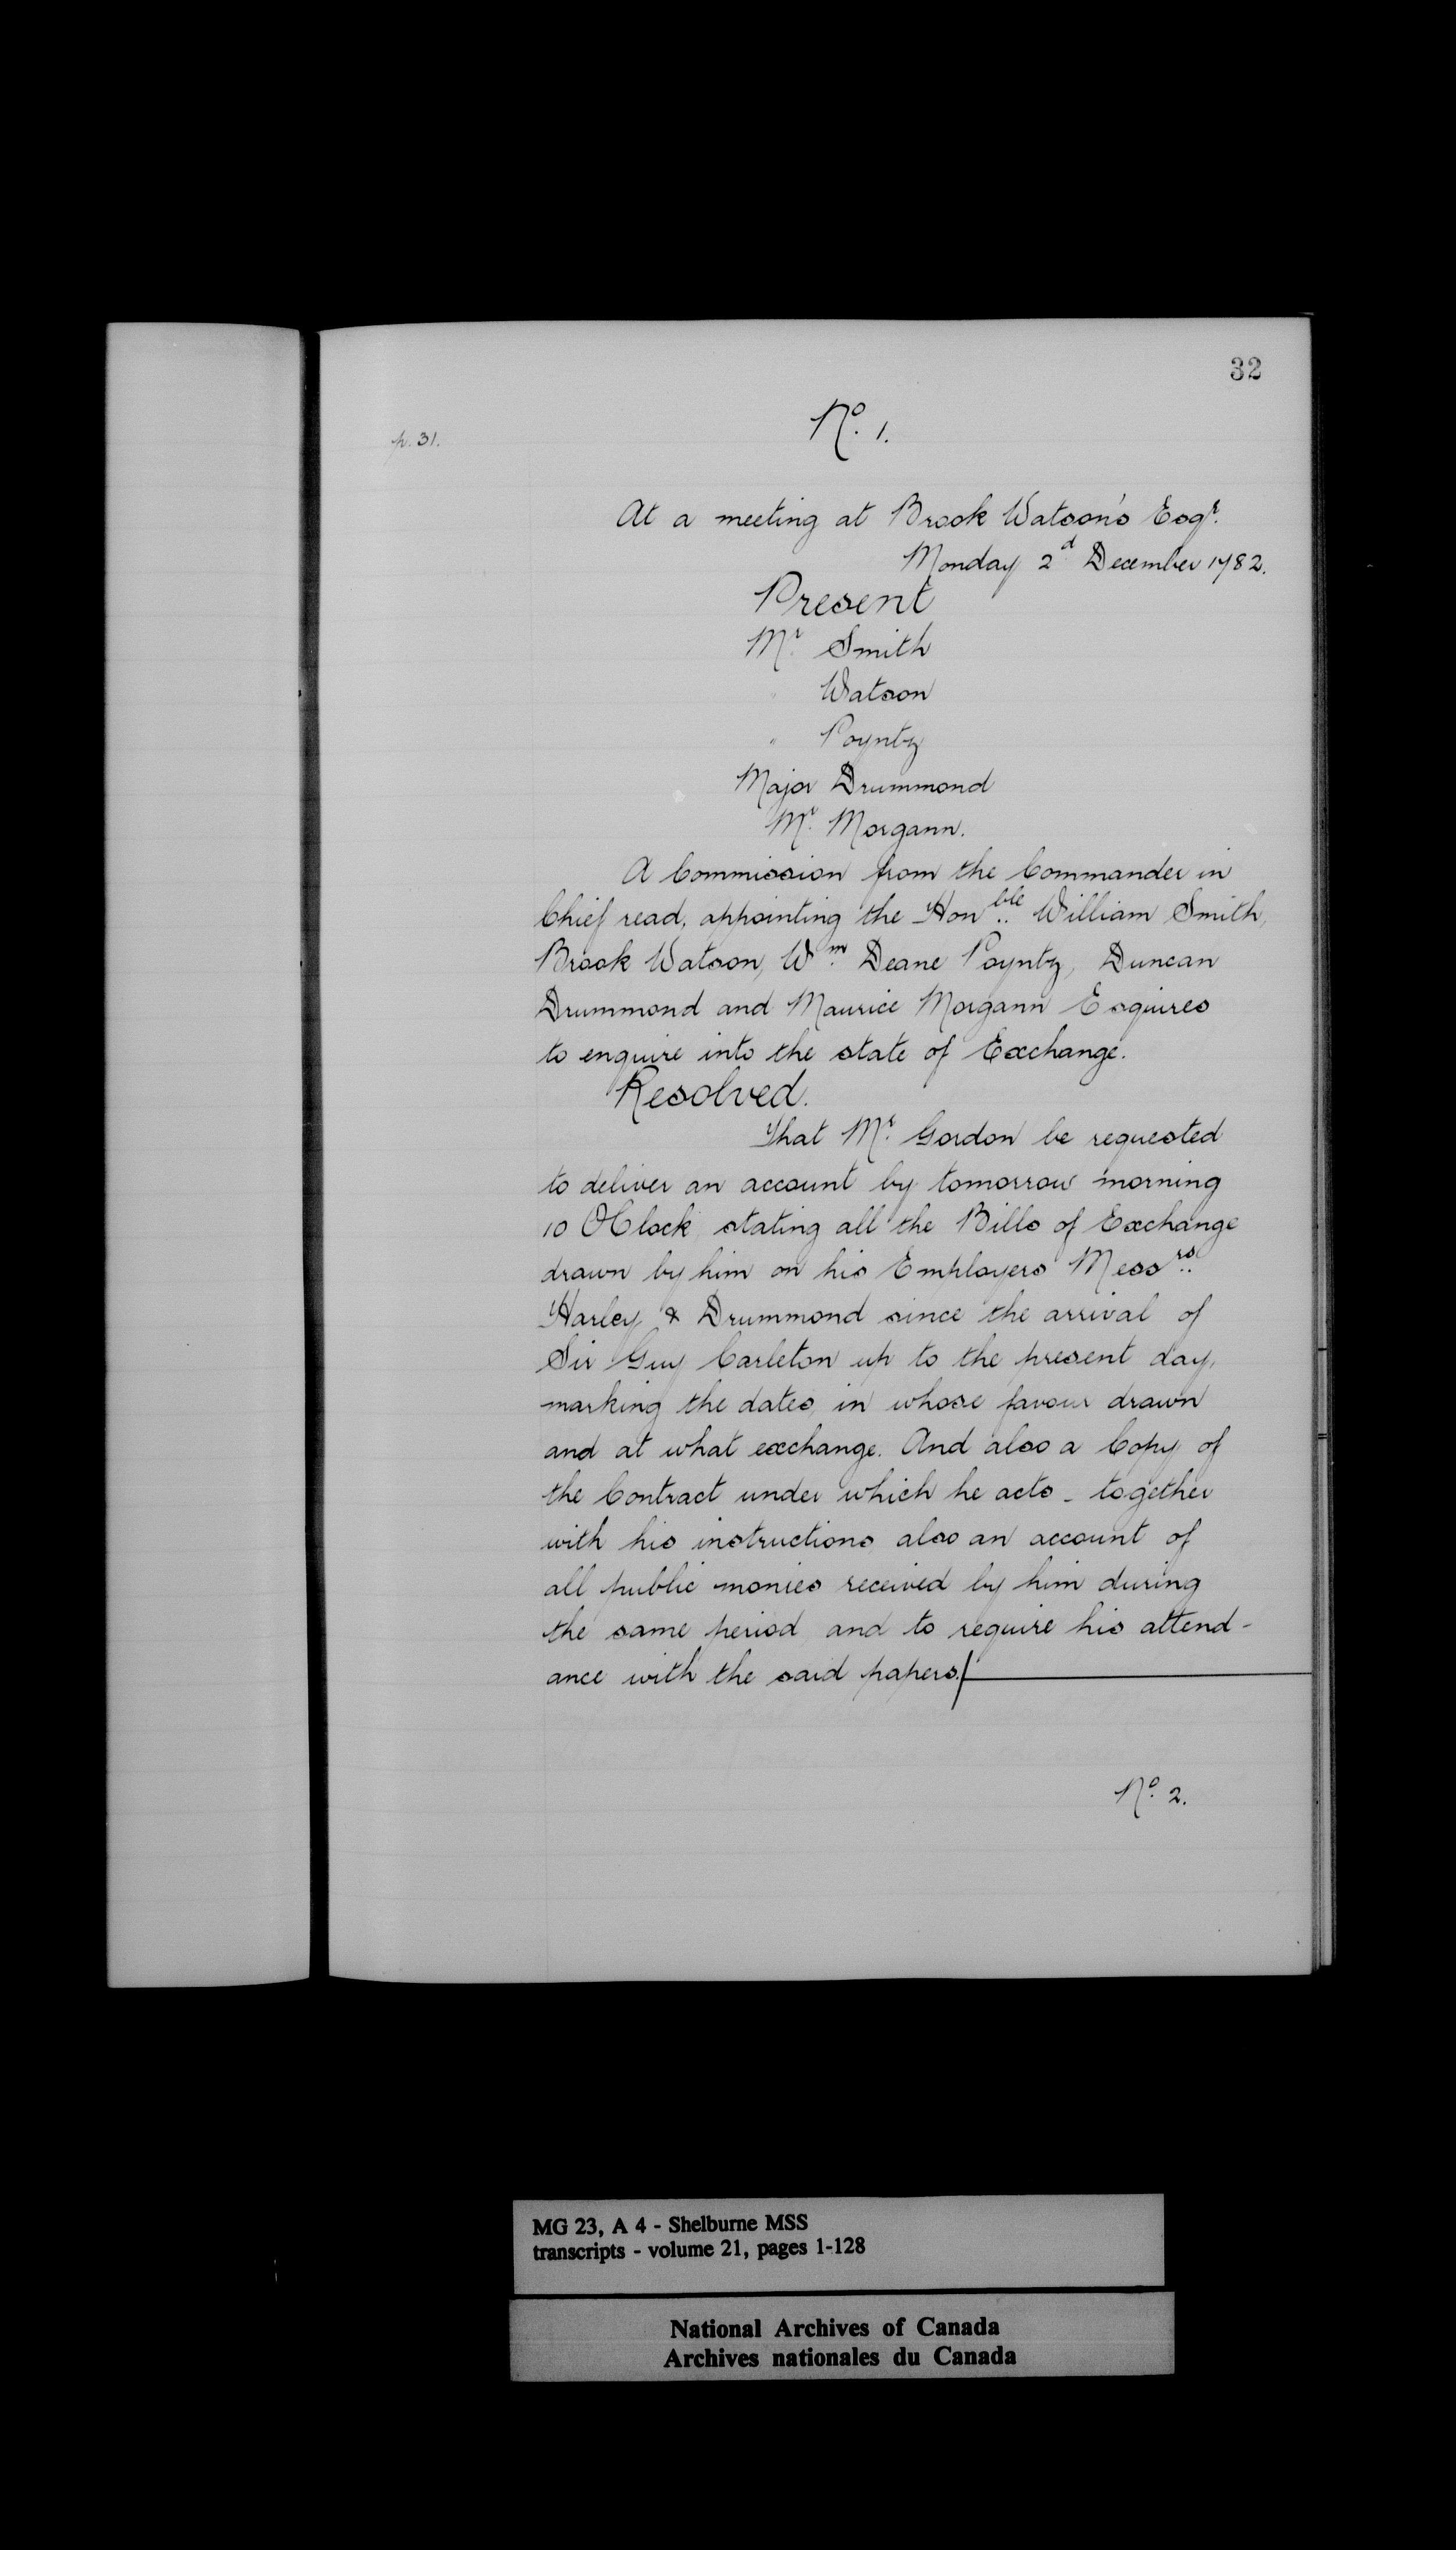 32
No. 1.
p. 31.
At a meeting at Brook Watson's Esqr.
Monday 2d December 1782.
Present
Mr. Smith
" Watson
" Poyntz
Major Drummond
Mr. Morgann.
A Commission from the Commander in
Chief read, appointing the Honble. William Smith,
Brook Watson, Wm. Deane Poyntz, Duncan
Drummond and Maurice Morgann Esquires
to enquire into the state of Exchange.
Resolved.
That Mr. Gordon be requested
to deliver an account by tomorrow morning
10 OClock, stating all the Bills of Exchange
drawn by him on his Employers Messrs.
Harley & Drummond since the arrival of
Sir Guy Carleton up to the present day,
marking the dates, in whose favour drawn
and at what exchange. And also a Copy of
the Contract under which he acts - together
with his instructions, also an account of
all public monies received by him during
the same period, and to require his attend-
ance with the said papers./
No. 2.
MG 23, A 4 - Shelburne MSS
transcripts - volume 21, pages 1-128
National Archives of Canada
Archives nationales du Canada